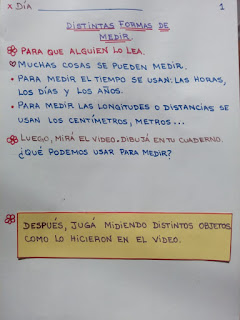 x DÍA 1
DISTINTAS FORMAS DE
MEDIR
PARA QUE ALGUIEN LO LEA.
MUCHAS COSAS SE PUEDEN MEDIR.
• PARA MEDIR EL TIEMPO SE USAN: LAS HORAS,
LOS DÍAS Y LOS AÑOS.
• PARA MEDIR LAS LONGITUDES O DISTANCIAS SE
USAN LOS CENTÍMETROS, METROS...
LUEGO, MIRÁ EL VIDEO. DIBUJÁ EN TU CUADERNO.
¿QUÉ PODEMOS USAR PARA MEDIR?
DESPUÉS, JUGÁ MIDIENDO DISTINTOS OBJETOS
COMO LO HICIERON EN EL VIDEO.